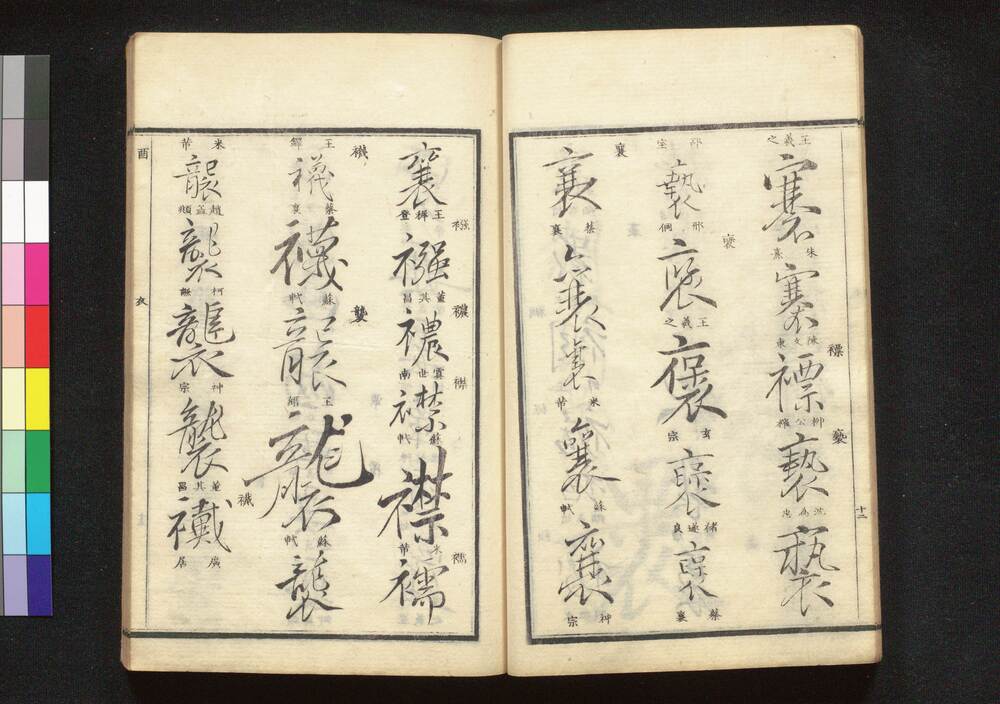 王羲之 褰 朱熹 褰 陳文東 褾 褾 柳公權 褻 褻 褻
褻 邢侗 褎 王羲之 褒 玄宗 褒 褚遂良 褒 蔡襄
襄 襄 蔡襄 襄 襄 米芾 囊 蘇軾 囊 神宗
十二
襄 王穉登 襁 襁 董其昌 襛 襛 虞世南 襟 襟 蘇軾 襟 米芾 襦 襦
王鐸 襪 襪 蔡襄 襪 蘇軾 襲 襲 襲 蘇軾 襲
米芾 襲 趙孟頫 襲 襲 神宗 襲 董其昌 襶 襶 廣居
酉 衣